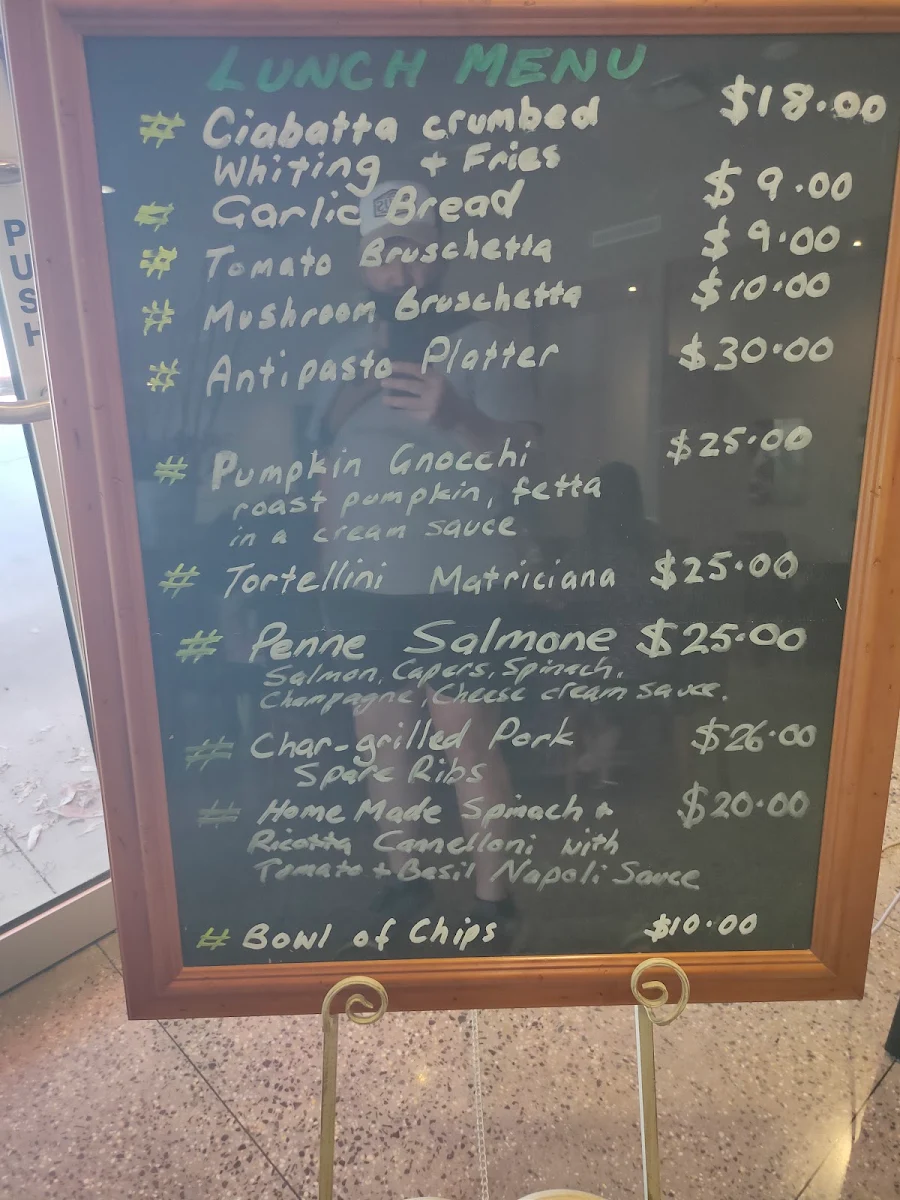 LUNCH MENU
# Ciabatta crumbed $18.00
Whiting + Fries
# Garlic Bread $9.00
# Tomato Bruschetta $9.00
# Mushroom Bruschetta $10.00
# Antipasto Platter $30.00
# Pumpkin Gnocchi $25.00
roast pumpkin, fetta
in a cream sauce
# Tortellini Matriciana $25.00
# Penne Salmone $25.00
Salmon, Capers, Spinach,
Champagne, Cheese cream sauce.
# Char-grilled Pork $26.00
Spare Ribs
# Home Made Spinach + $20.00
Ricotta Cannelloni with
Tomato + Basil Napoli Sauce
# Bowl of Chips $10.00
PUSH